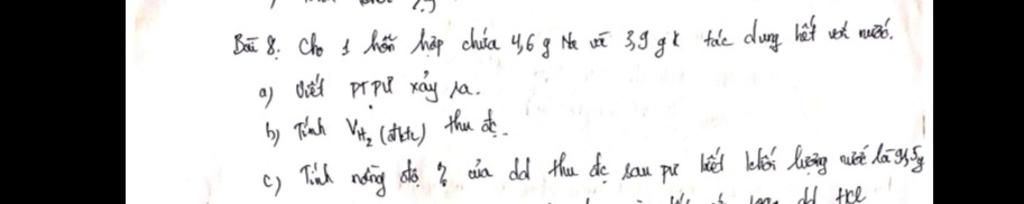 Bài 8. Cho 1 hỗn hợp chứa 4,6 g Na và 3,9 g K tác dụng hết với nước.
a) Viết PTPƯ xảy ra.
b) Tính VH₂ (đktc) thu đc.
c) Tính nồng độ % của dd thu đc sau pư biết khối lượng nước là 91,5g
dd HCl